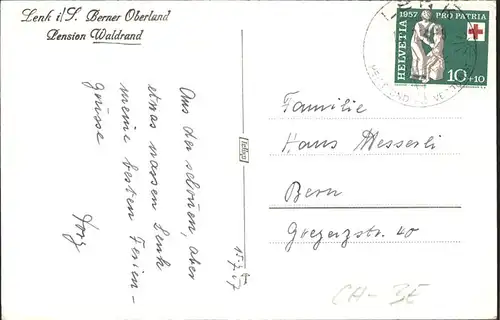 Lenk i/S. Berner Oberland
Pension Waldrand
Aus der schönen, aber
etwas nassen Lenk
meine besten Ferien-
grüsse
15.7.57
Tellco
HELVETIA
1957 PRO PATRIA
10+10
Familie
Hans Messerli
Bern
Gregerzstr. 40
CH-3E